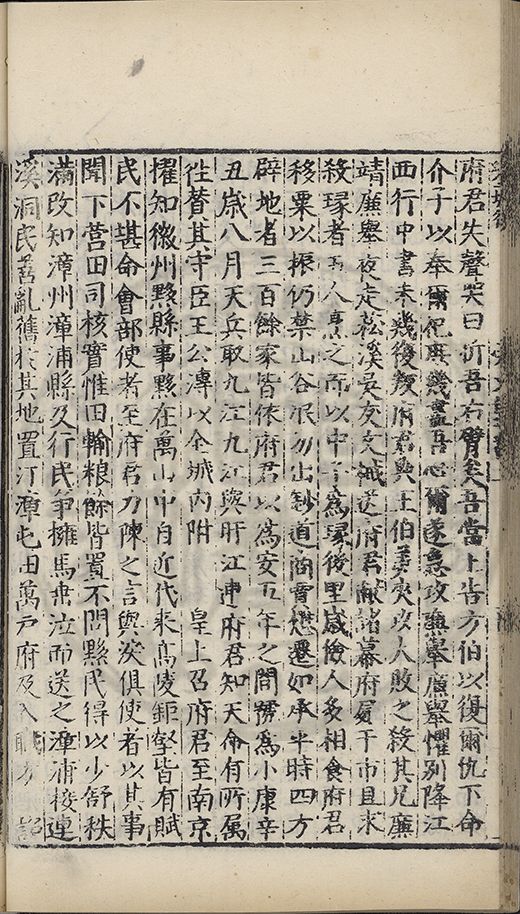 府君失聲哭曰折吾右臂矣吾當上告方伯以復爾仇下命
介子以奉爾祀庶幾盡吾心爾遂急攻廉舉廉舉懼別降江
西行中書未幾復叛府君與王伯美夾攻人敗之殺其兄廉
靖廉舉夜走松溪吳友文誠送府君獻諸幕府屍于市且求
殺琢者五人烹之而以中子為琢後里歲儉人多相食府君
移粟以振仍禁山谷氓勿出鈔道商賈懋遷如承平時四方
辟地者三百餘家皆依府君以為安五年之間號為小康辛
丑歲八月天兵取九江九江與盱江連府君知天命有所屬
徃贊其守臣王公溥以全城內附 皇上召府君至南京
擢知徽州黟縣事黟在萬山中自近代來高陵鉅壑皆有賦
民不堪命會部使者至府君力陳之言與淚俱使者以其事
聞下營田司核實惟田輸粮餘皆置不問黟民得以少舒秩
滿改知漳州漳浦縣及行民爭擁馬無泣而送之漳浦接連
溪洞民喜亂舊於其地置汀漳屯田萬戶府及入職方 詔